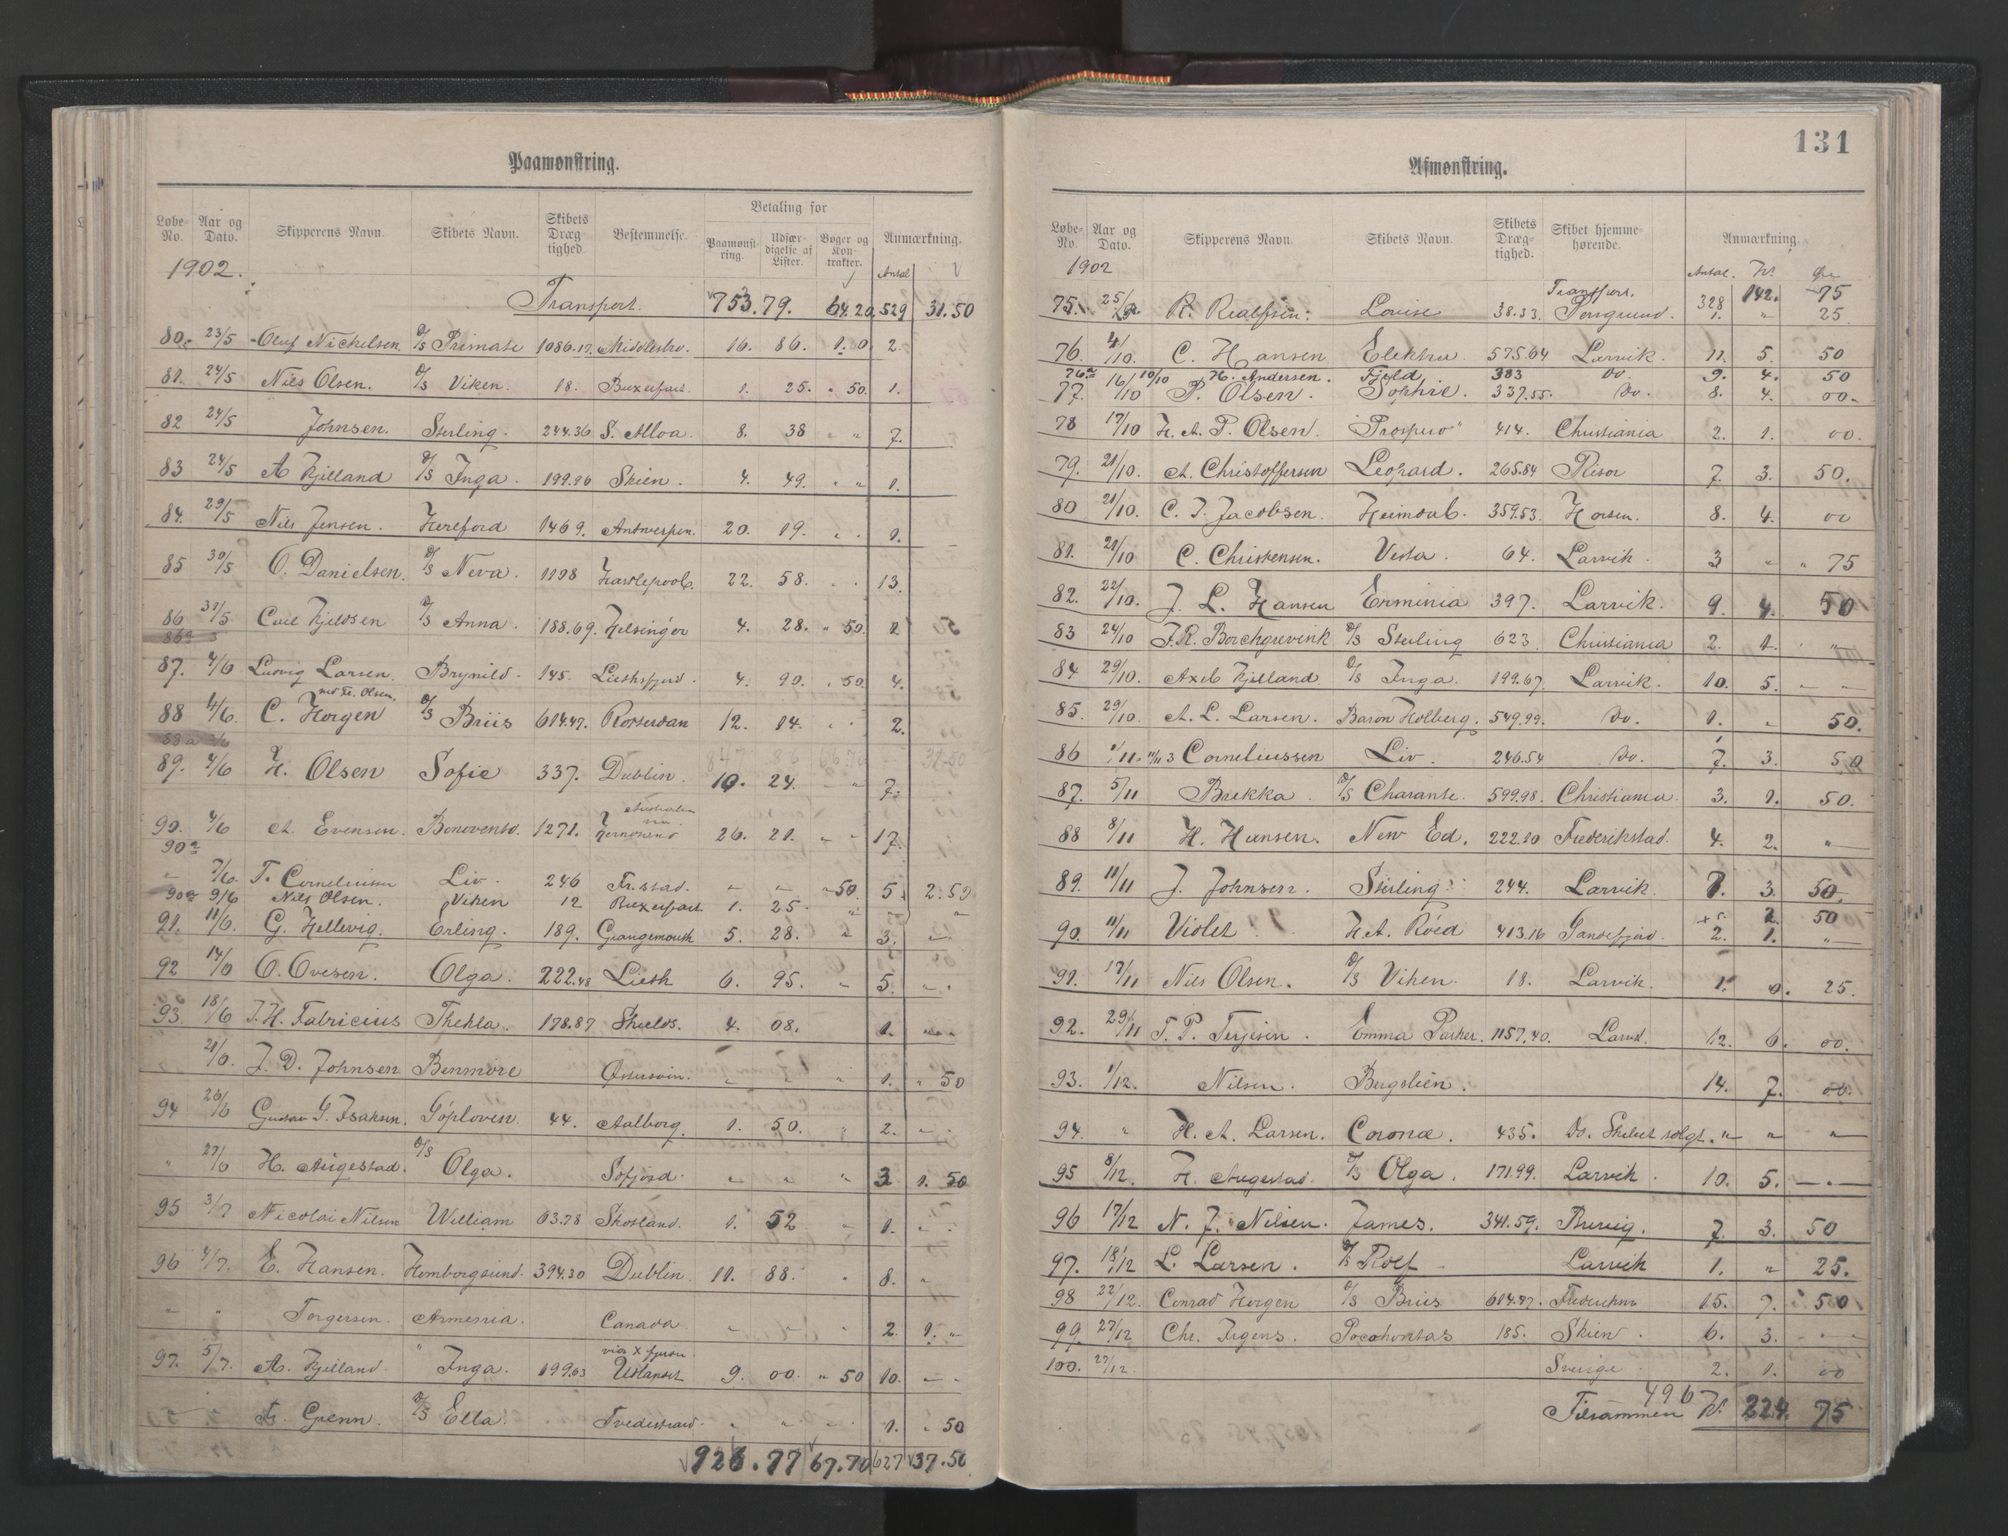 Paamønstring.
Løbe-No. Aar og Dato. Skipperens Navn. Skibets Navn. Skibets Dræg-tighed. Bestemmelse. Betaling for Paamønst-ring. Udfær-digelse af Lister. Bøger og Kon trakter. Anmærkning.
1902. Antal
Transport. 753.79. 64.20 529 31.50
80. 23/5 Oluf Nickelsen. D/S Primate 1086.17 Middlesbro. 16. 86. 1.0 2.
81. 24/5 Nils Olsen. D/S Viken. 18. Buxerfart. 1. 25. " 50. 1.
82 24/5 Johnsen. Sterling. 244.36 S. Alloa. 8. 38 " " 7.
83 24/5 A Kjelland D/S Inga. 199.96 Skien. 4. 49. " " 1.
84. 29/5 Nils Jensen. Hereford 1469. Antwerpen. 20. 19. " . 1.
85 30/5 O. Danielsen. D/S Neva. 1198 Hartlepool. 22. 58. . . 13.
86 31/5 Emil Kjeldsen D/S Anna. 188.69. Helsingør 4. 28. " 50. 2
87. 4/6 Ludvig Larsen. Brynild. 145. Liethsfjord. 4. 90. . 50. 4.
ved Fr. Olsen
88 4/6. C. Horgen D/S Briis 614.47. Rotterdam 12. 14. " . 2.
89. 4/6 H. Olsen Sofie 337. Dublin. 10. 24. " 7.
90. 4/6 A. Evensen. Bonovento. 1271. Hernøsand 26. 21. " " 17.
90a
" 7/6. T. Corneliussen Liv. 246 Fr.stad. " " " 50 5. 2.50
90a 9/6 Nils Olsen. Viken 12 Buxerfart. 1. 25. " "
91. 11/6. G. Hellevig. Erling. 189. Grangemouth 5. 28. " 3. "
92 14/6 O. Ovesen. Olga. 222.48 Lieth 6. 95. " 5. " .
93. 18/6 J. H. Fabricius Thekla. 178.87 Shields. 4. 08. 1. "
21/6. J. D. Johnsen Benmore Østersøen. " " " 1. " 50
94 26/6 Gustav G. Isaksen. Gøploven. 44. Aalborg. 1. 50. " 2. " .
" 27/6 H. Augestad. D/S Olga. Sofjord. " " " 3 1. 50
95 3/7 Nicolai Nilsen William 63.78 Skotland. 1. 52 " 1. " .
96 4/7. E. Hansen. Homborgsund. 394.30 Dublin. 11. 88. " 8. "
" " Torgersen. Armenia. Canada. " " " 2. 1. "
97. 5/7. A. Kjelland. " Inga. 199.63 Udlandet 9. 00. " 50 10. " .
Fr. Grenn. D/S Ella. Tvedestrand. " " " 1. " 50
926.77 67.70 627 37.50
131
Afmønstring.
Løbe-No. Aar og Dato. Skipperens Navn. Skibets Navn. Skibets Dræg-tighed. Skibet hjemme-hørende. Anmærkning.
1902 Antal. Kr. Øre
Transport. 328 142. 75
75. 25/9 R. Realfsen. Louise 38.33. Porsgrund. 1. " 25.
76. 4/10. C. Hansen Elektra. 575.64 Larvik. 11. 5. 50
76a 10/10 H. Andersen. Fjeld 383 Do. 9. 4. 50
77. 16/10 P. Olsen. Sophie. 337.55. Do. 8. 4. 00.
78 17/10 H. A. P. Olsen. Prospero" 414. Christiania 2. 1. 00.
79. 21/10. A. Christoffersen Leopard. 265.84 Risør 7. 3. 50.
80 21/10. C. J. Jacobsen. Heimdal. 359.53. Horten. 8. 4. 00
81. 21/10 C. Christensen. Vesta. 64. Larvik. 3 " " 75
82. 22/10. J. L. Hansen Erminia 397. Larvik. 9. 4. 50
83 24/10 F. R. Borchgrevink D/S Sterling 623 Christiania 2. 1. "
84 29/10. Axel Kjelland. D/S Inga. 199.67. Larvik. 10. 5. " "
85. 29/10. A. L. Larsen. Baron Holberg. 549.99. Do. 1. " 50.
86 1/11 Corneliussen Liv. 246.54 Do. 7. 3. 50
87. 5/11 Brekka. D/S Charante. 599.98. Christiania. 3. 1. 50.
88 8/11 H. Hansen. New Ed. 222.80 Frederikstad. 4. 2. "
89. 11/11 J. Johnsen. Sterling. 244. Larvik. 7. 3. 50.
+5. 2. 50
90. 11/11 Violet H. A. Röed 413.16 Sandefjord. 2. 1. "
91. 17/11 Nils Olsen. D/S Viken. 18. Larvik. 1. 0. 25.
92. 29/11 T. P. Terjesen. Emma Parker. 1157.40. Larvik. 12. 6. 00.
93. 1/12. Nilsen. Bergslien. 14. 7. 00.
94. " H. A. Larsen. Corona. 435. Do. Skibet solgt. " " "
95 8/12. H. Augestad. D/S Olga. 171.99. Larvik. 10. 5. " . "
96 17/12 N. J. Nilsen. James. 341.59. Brevig. 7. 3. 50
97. 18/12 L. Larsen. D/S Rolf Larvik 1. " 25.
98 22/12. Conrad Horgen D/S Briis 614.47. Frederikshav 15. 7. 50
99. 27/12 Chr. Irgens. Pocahontas 185. Skien. 6. 3. " . "
100. 27/12. Sverige. 2. 1. 00
496
Tilsammen Kr. 224. 75